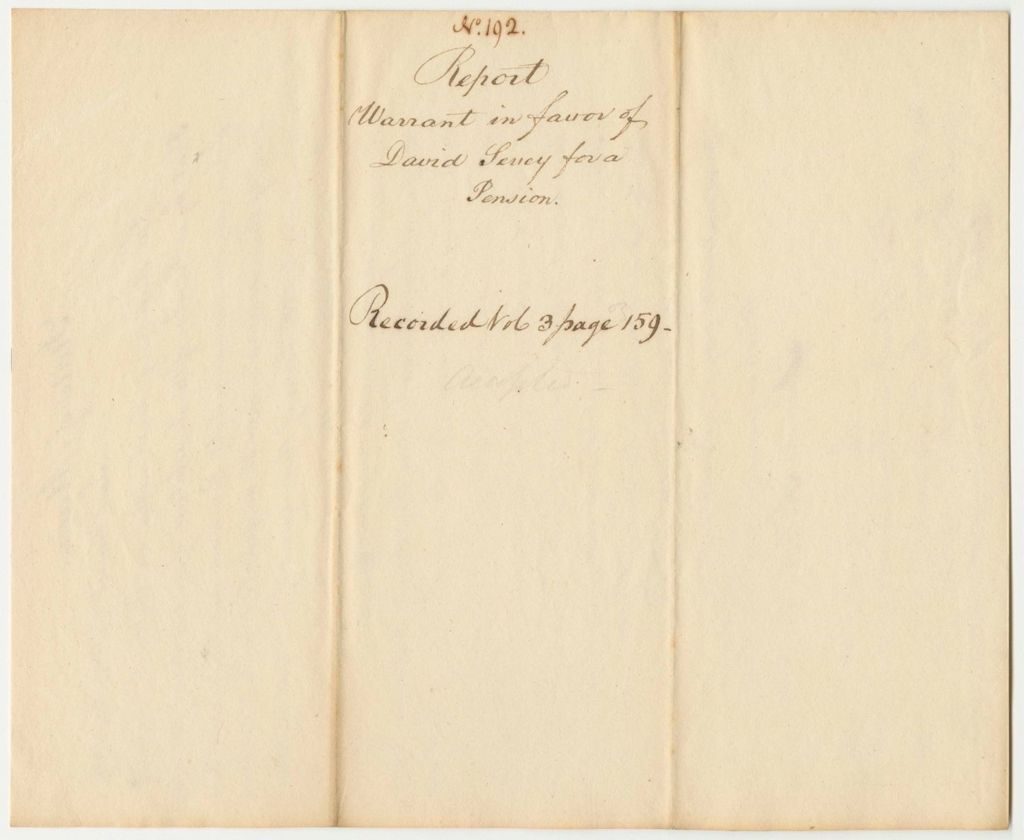 No. 192.
Report
Warrant in favor of
David Sevey for a
Pension.
Recorded Vol 3 page 159-
Accepted -